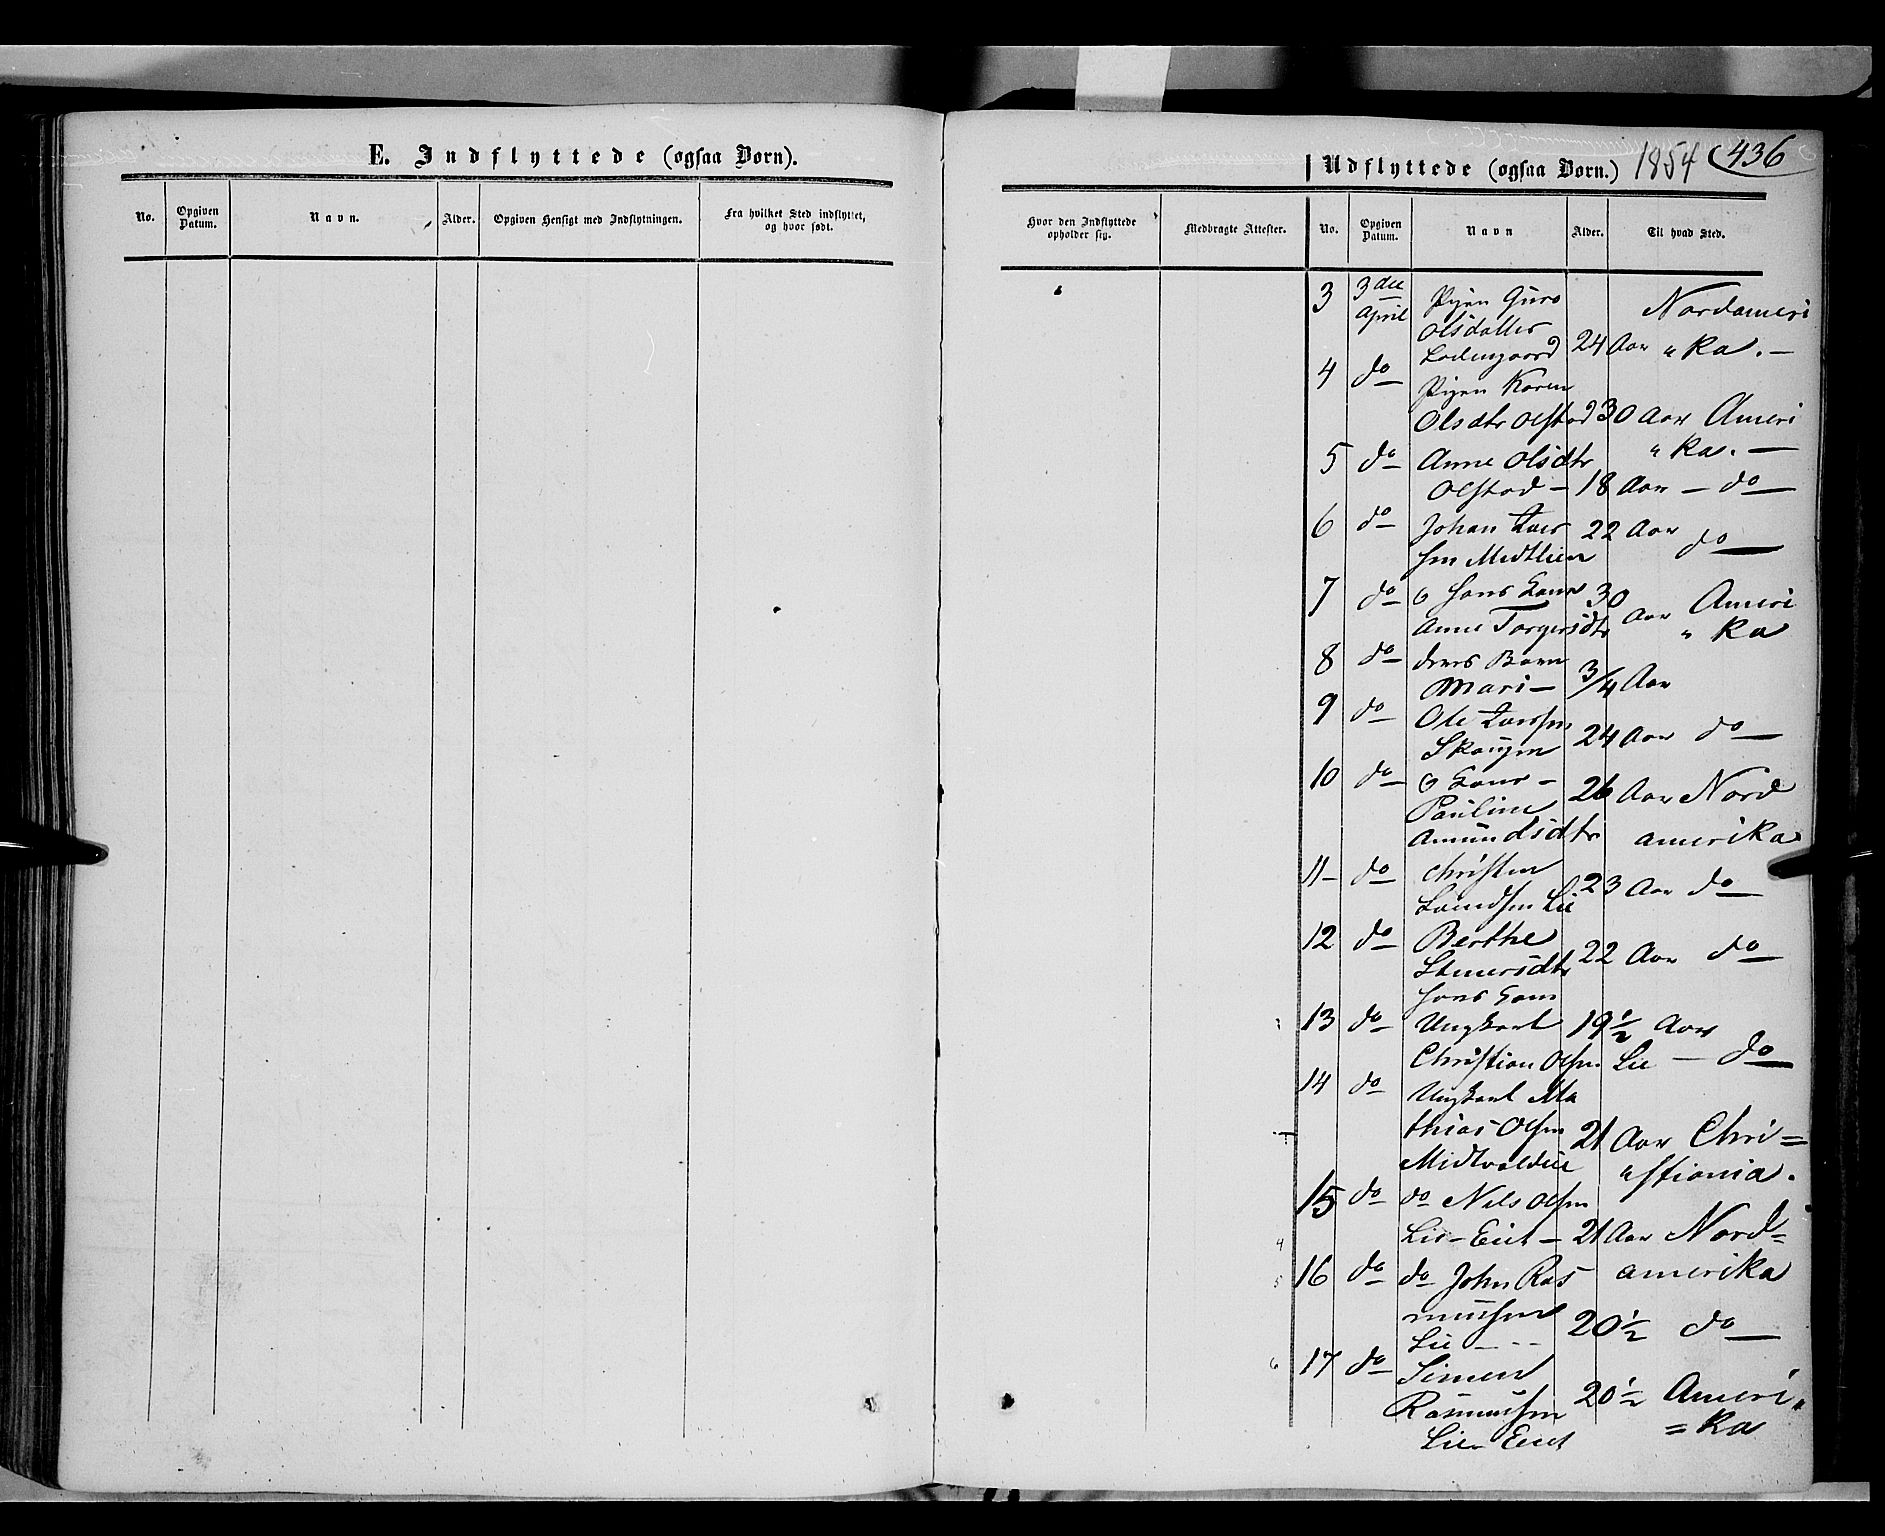 E. Indflyttede (ogsaa Børn).
No.
Opgiven Datum.
Navn.
Alder.
Opgiven Hensigt med Indflytningen.
Fra hvilket Sted indflyttet, og hvor født.
Udflyttede (ogsaa Børn.) 1854 436
Hvor den Indflyttede opholder sig.
Medbragte Attester.
No.
Opgiven Datum.
Navn
Alder.
Til hvad Sted.
3 3die April Pigen Guro Nordameri
Olsdatter
24 Aar "ka. —
4 do Pigen Karen
Olsdtr Olstad 30 Aar Ameri
"ka. —
5 do Anne Olsdtr
Olstad — 18 Aar — do
6 do Johan Lars 22 Aar do
sen Midtlien
7 do o hans Kone 30 Aar Ameri
Anne Torgersdtr " ka
8 do deres Barn
Mari — 3/4 Aar
9 do Ole Larssen
Skougen 24 Aar do
10 do o Kone — 26 Aar Nord
Pauline
Amundsdtr amerika
11 — do Christen
Lie 23 Aar do
12 do Berthe
22 Aar do
hans Kone
13 do Ungkarl 19 1/2 Aar
Christian Olsen Lie — do
14 do Ungkarl Ma
thias Olsen 21 Aar Chri=
"stiania.
15 do do Nils Olsen
Lie-Eiet — 21 Aar Nord=
amerika
16 do do John Ras
mussen 20 1/2 do
Lie — - -
17 do Simen
Rasmussen 20 1/2 Ameri
Lie-Eiet =ka